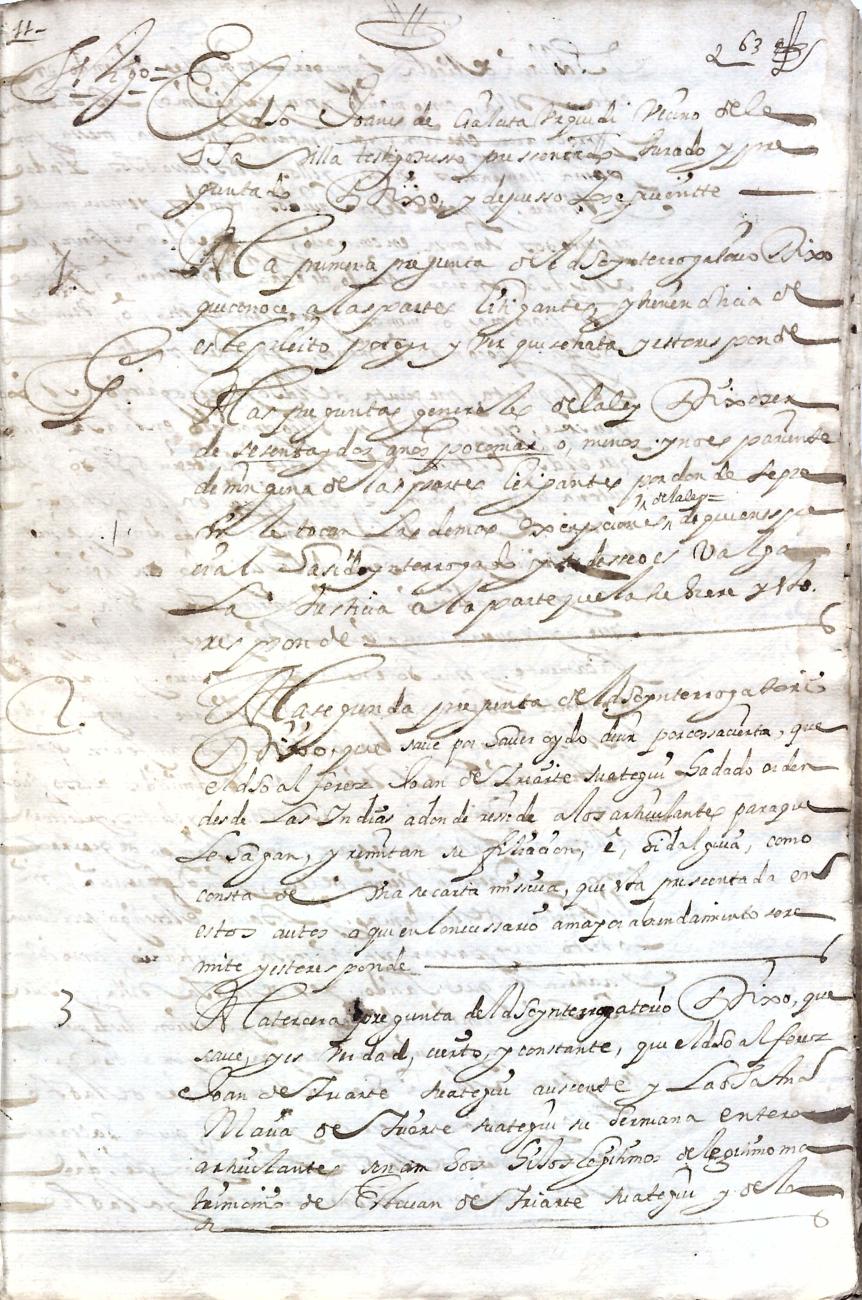 11
263
Tgo
El dho Joanes de Galarza vezino de
dha villa testigo suso pressentado jurado y pre
guntado Dixo, y depusso lo siguiente
1. A la primera pregunta del dho ynterrogatorio Dixo
que conoce a las partes litigantes, y tiene noticia de
este pleito por oyr y ver que se trata y esto responde
A las preguntas generales de la ley Dixo ser
de sesenta y dos años poco mas o, menos y no es pariente
de ninguna de las partes litigantes por donde
le tocan las demas excepciones de la ley= de quien espe
cial ha sido ynterrogado y su desseo es Valga
La Justicia a la parte que la tubiere y esto
responde
2. A la segunda pregunta del dho ynterrogatorio
Dixo, que save por haver oydo decir por cossa cierta, que
el dho alferez Joan de Yriarte Yuategui ha dado orden
desde Las Indias adonde reside a los articulantes para que
le hagan, y remitan su filiacion, e, hidalguia, como
consta de Vna su carta missiua, que esta pressentada en
estos autos a que en lo necessario a mayor abundamiento se re
mite y esto responde
3 A la tercera pregunta del dho ynterrogatorio Dixo, que
saue, y es verdad, cierto, y constante, que el dho alferez
Joan de Yriarte Yuategui aussente y La dha Ana
Maria de Yriarte Yuategui su hermana entera
articulante son ambos hijos legitimos de legitimo ma
trimonio de Esteuan de Yriarte Yuategui y de la